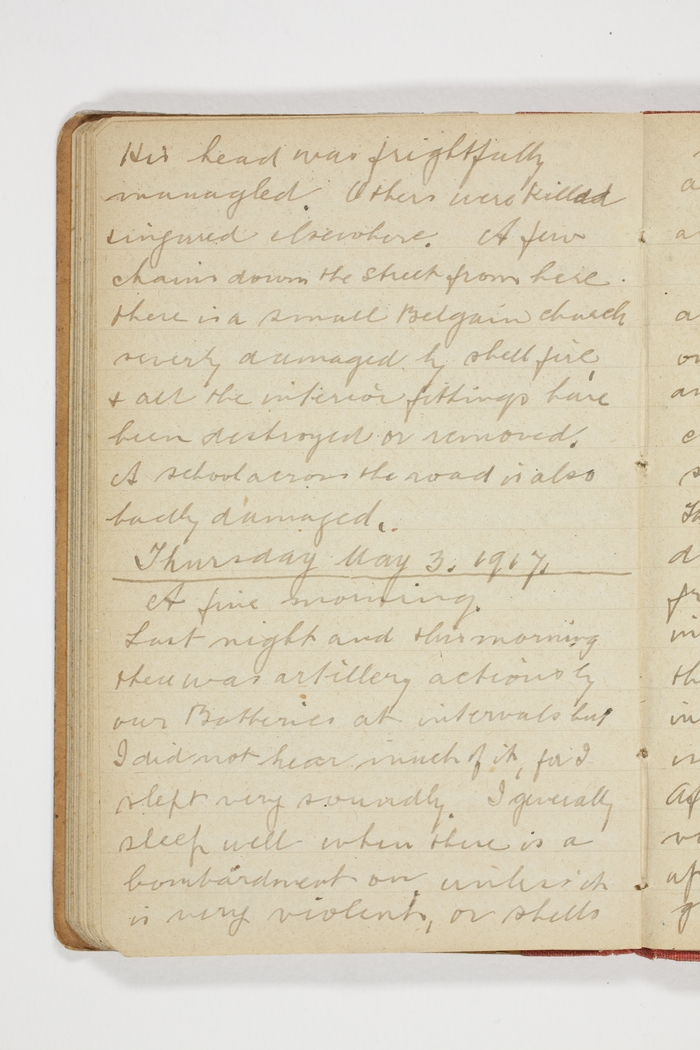 His head was frightfully
managled. Others were killed
singured elsewhere. A few
chains down the street from here
there is a small Belgain church
severly damaged by shell fire
& all the interior fittings have
been destroyed or removed.
A school across the road is also
badly damaged.
Thursday May 3. 1917.
A fine morning.
Last night and this morning
there was artillery actions by
our Batteries at intervals but
I did not hear much of it, for I
slept very soundly. I generally
sleep well when there is a
bombardment on unless it
is very violent, or shells